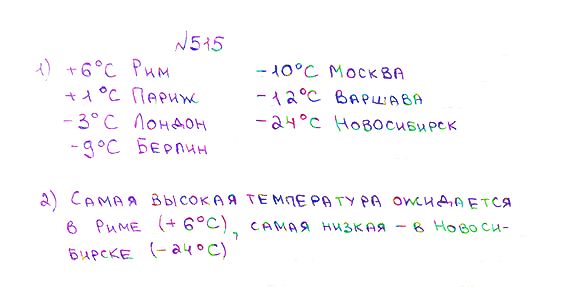 №515
1) +6°C Рим
+1°C Париж
-3°C Лондон
-9°C Берлин
-10°C Москва
-12°C Варшава
-24°C Новосибирск
2) Самая высокая температура ожидается
в Риме (+6°C), самая низкая – в Новоси-
бирске (-24°C)